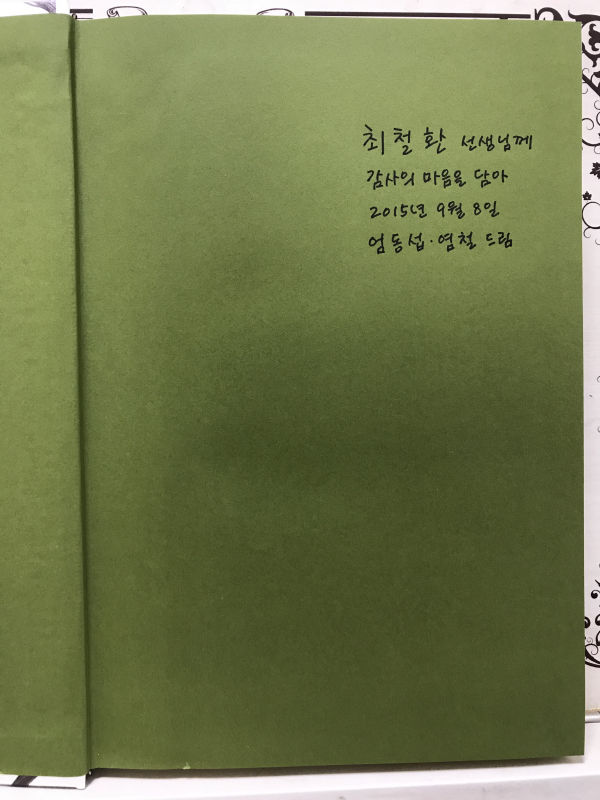 최철환 선생님께
감사의 마음을 담아
2015년 9월 8일
엄동섭·염철 드림